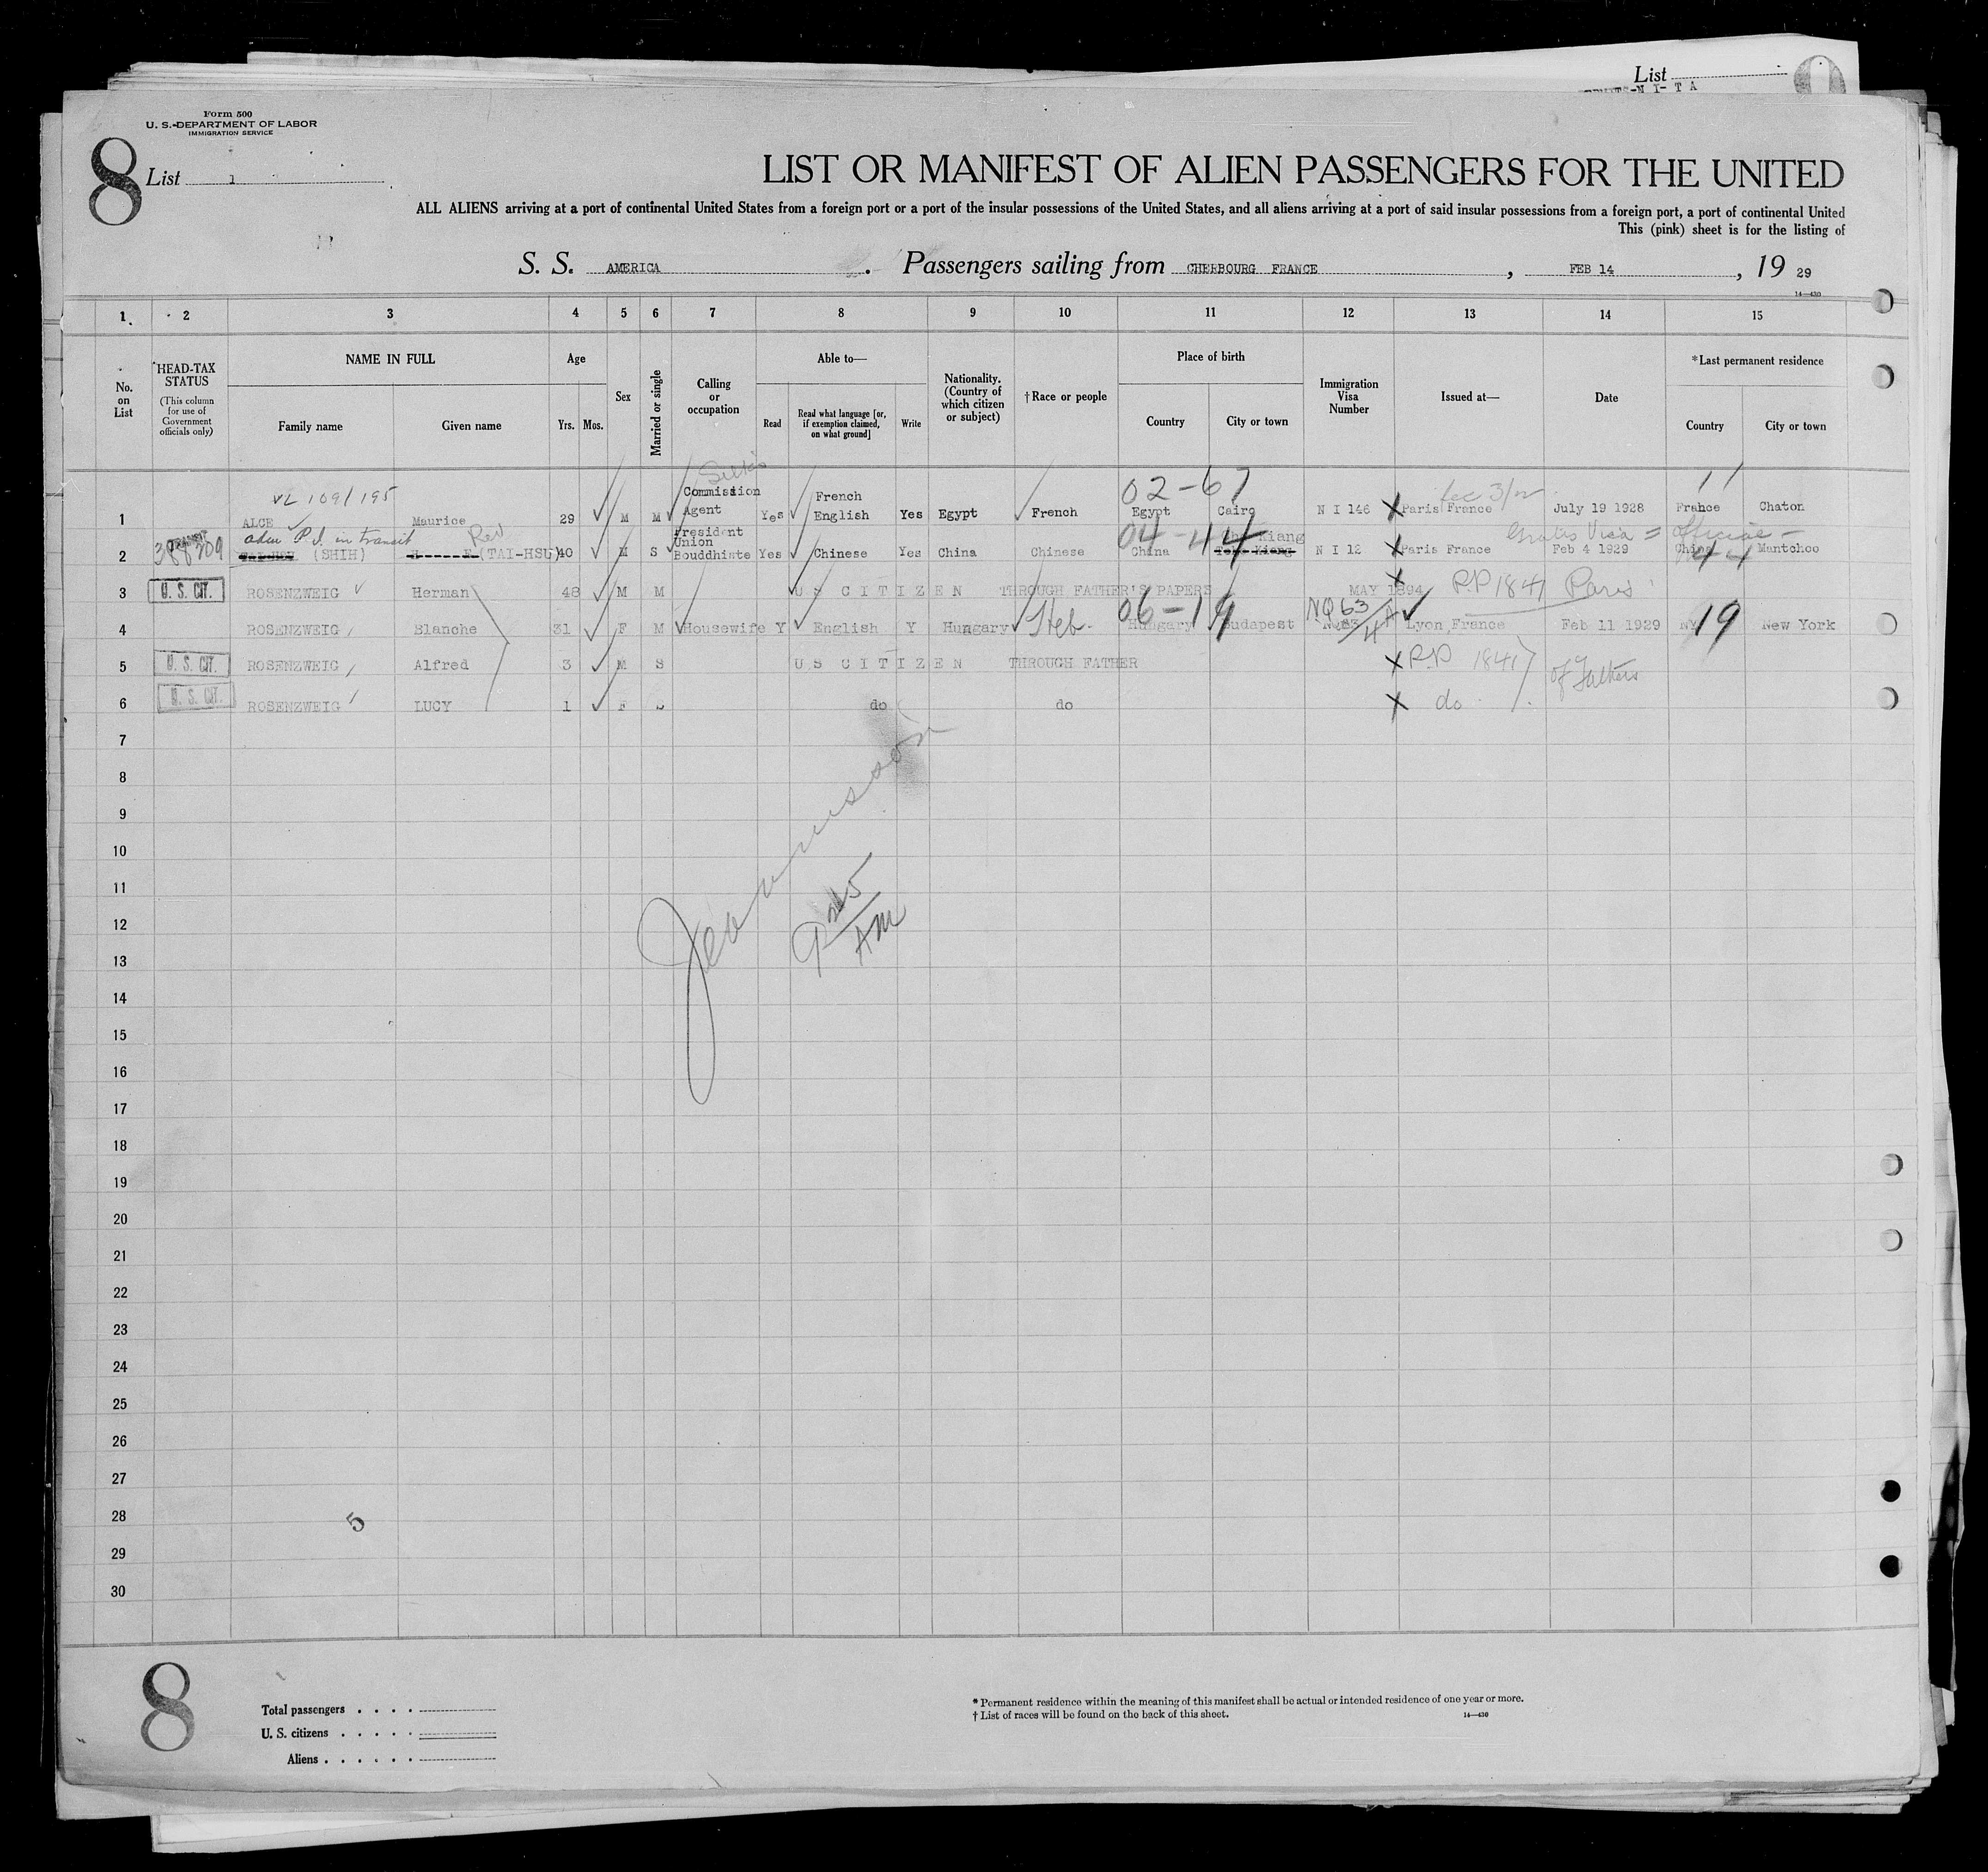 List
Form 500
U. S. DEPARTMENT OF LABOR
IMMIGRATION SERVICE
8
List 1
LIST OR MANIFEST OF ALIEN PASSENGERS FOR THE UNITED
ALL ALIENS arriving at a port of continental United States from a foreign port or a port of the insular possessions of the United States, and all aliens arriving at a port of said insular possessions from a foreign port, a port of continental United
This (pink) sheet is for the listing of
S. S. AMERICA. Passengers sailing from CHERBOURG FRANCE, FEB 14, 19 29
14—430
1 2 3 4 5 6 7 8 9 10 11 12 13 14 15
No. on List
HEAD-TAX STATUS
(This column for use of Government officials only)
NAME IN FULL
Family name Given name
Age
Yrs. Mos.
Sex
Married or single
Calling or occupation
Able to—
Read
Read what language [or, if exemption claimed, on what ground]
Write
Nationality. (Country of which citizen or subject)
† Race or people
Place of birth
Country City or town
Immigration Visa Number
Issued at—
Date
*Last permanent residence
Country City or town
VL 109/195 02-67 11
1 ALCE Maurice 29 M M Commission Agent Yes French English Yes Egypt French Egypt Cairo N I 146 Paris France July 19 1928 France Chaton
adm P.I. in transit Rev 04-44 Gratis Visa = Official -
2 388209 (SHIH) (TAI-HSU) 40 M S President Union Bouddhiste Yes Chinese Yes China Chinese China N I 12 Paris France Feb 4 1929 China 44 Mantchoo
3 U. S. CIT. ROSENZWEIG Herman 48 M M U S CITIZEN THROUGH FATHER'S PAPERS MAY 1894 P.P 1841 Paris
06-19 NQ 63
4 ROSENZWEIG Blanche 31 F M Housewife Y English Y Hungary Heb. Hungary Budapest Lyon France Feb 11 1929 NY 19 New York
5 U. S. CIT. ROSENZWEIG Alfred 3 M S U S CITIZEN THROUGH FATHER P.P 1841 of Fathers
6 U. S. CIT. ROSENZWEIG LUCY 1 F S do do do
7
8
9
10
11
12
13
14
15
16
17
18
19
20
21
22
23
24
25
26
27
28
29
30
AM
5
8
Total passengers
U. S. citizens
Aliens
* Permanent residence within the meaning of this manifest shall be actual or intended residence of one year or more.
† List of races will be found on the back of this sheet.
14—430